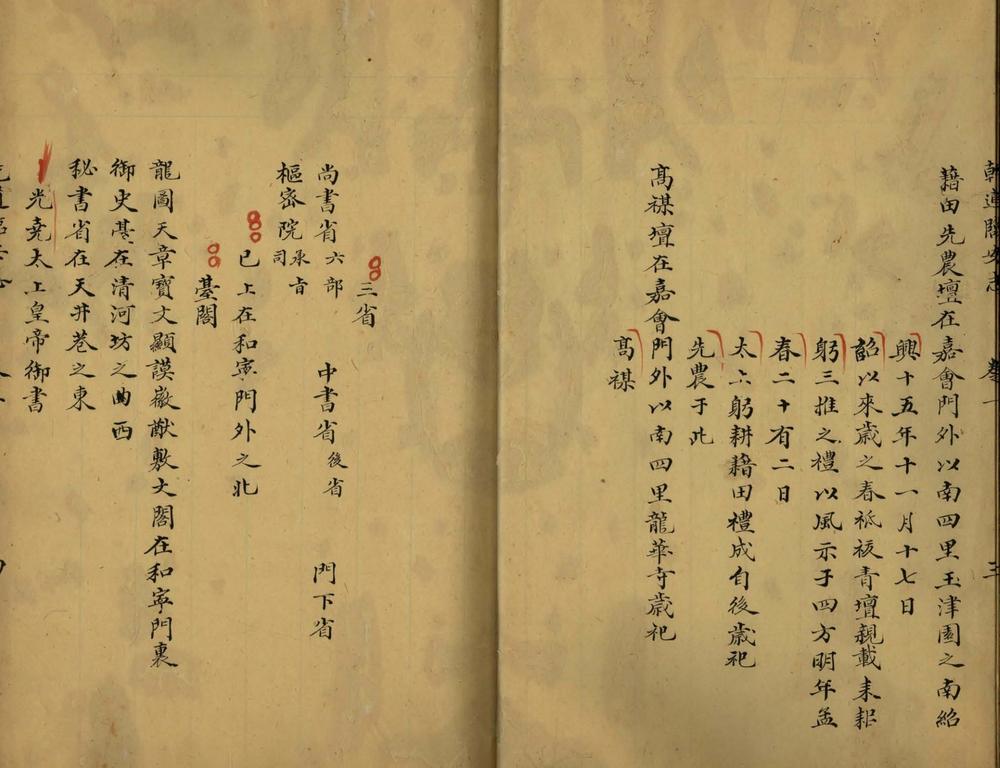 乾道臨安志 卷一 三
藉田先農壇在嘉會門外以南四里玉津園之南紹
興十五年十一月十七日
詔以來歲之春祗祓青壇親載耒耜
躬三推之禮以風示于四方明年孟
春二十有二日
太上躬耕藉田禮成自後歲祀
先農于此
高禖壇在嘉會門外以南四里龍華寺歲祀
高禖
三省
尚書省六部 中書省後省 門下省
樞密院承旨司
已上在和寧門外之北
臺閣
龍圖天章寶文顯謨徽猷敷文閣在和寧門裏
御史臺在清河坊之曲西
秘書省在天井巷之東
光堯太上皇帝御書